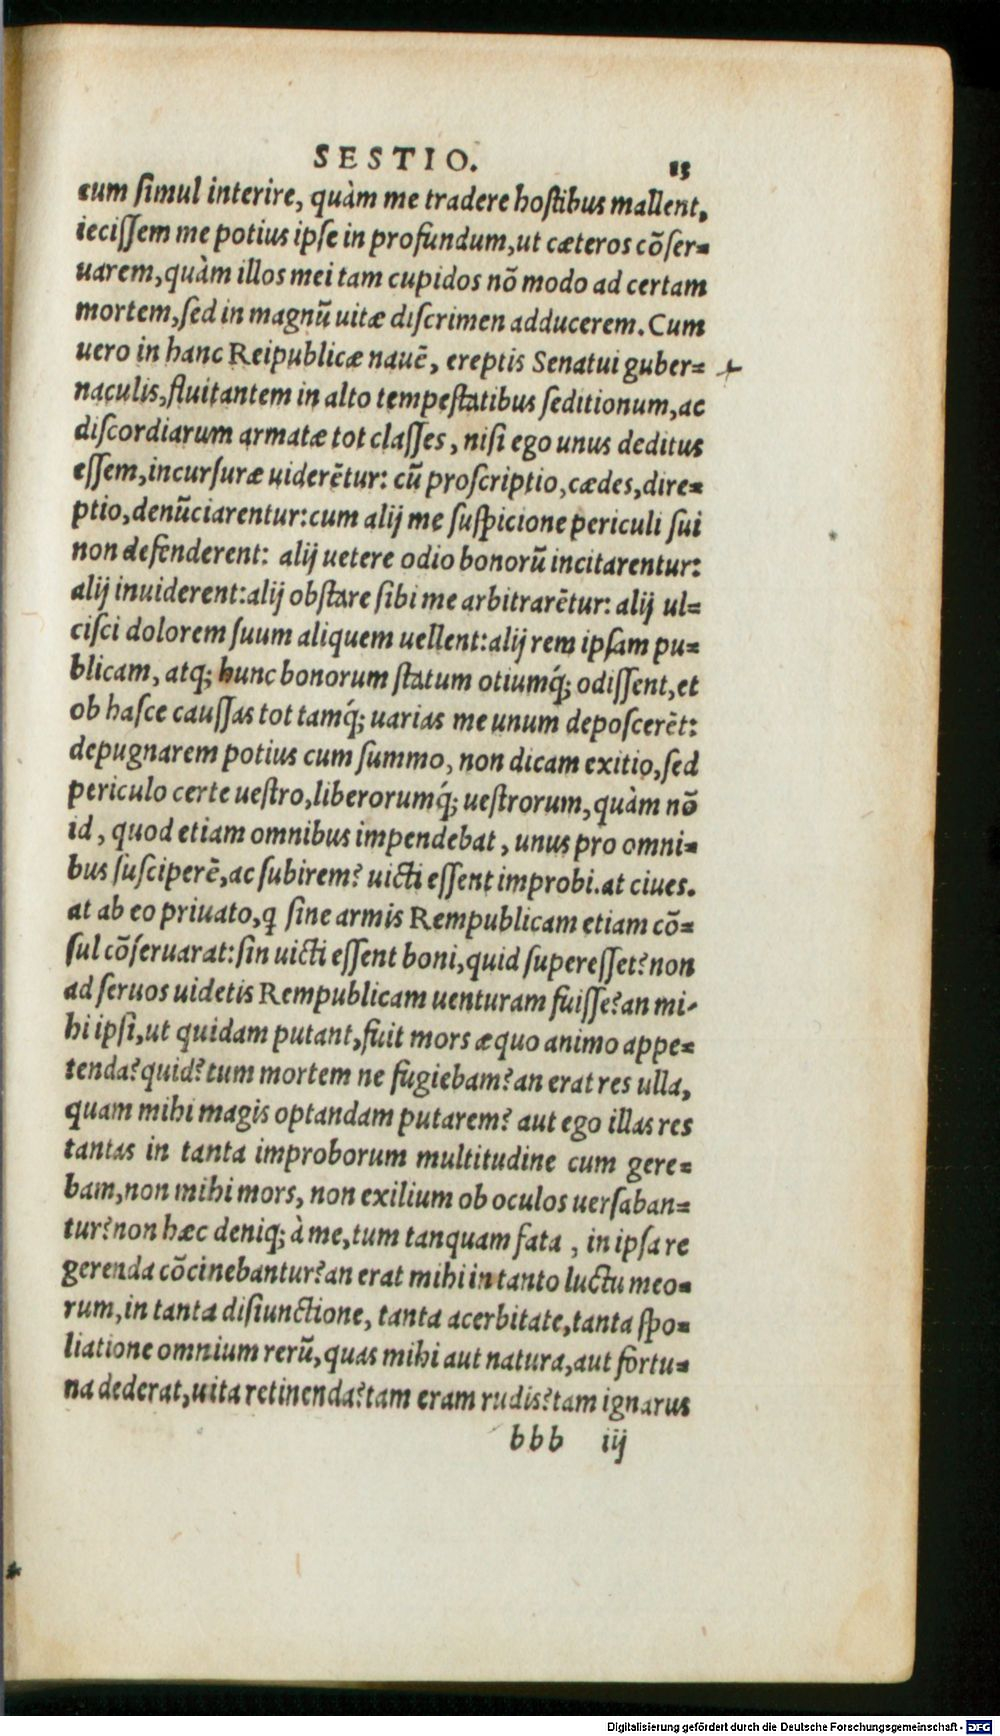 SESTIO. 13
cum simul interire, quàm me tradere hostibus mallent,
iecissem me potius ipse in profundum, ut cæteros cōser-
uarem, quàm illos mei tam cupidos nō modo ad certam
mortem, sed in magnū uitæ discrimen adducerem. Cum
uero in hanc Reipublicæ nauē, ereptis Senatui guber-
naculis, fluitantem in alto tempestatibus seditionum, ac
discordiarum armatæ tot classes, nisi ego unus deditus
essem, incursuræ uiderētur: cū proscriptio, cædes, dire-
ptio, denūciarentur: cum alij me suspicione periculi sui
non defenderent: alij uetere odio bonorū incitarentur:
alij inuiderent: alij obstare sibi me arbitrarētur: alij ul-
cisci dolorem suum aliquem uellent: alij rem ipsam pu-
blicam, atq; hunc bonorum statum otiumq́; odissent, et
ob hasce caussas tot tamq́; uarias me unum deposcerēt:
depugnarem potius cum summo, non dicam exitio, sed
periculo certe uestro, liberorumq́; uestrorum, quàm nō
id, quod etiam omnibus impendebat, unus pro omni-
bus susciperē, ac subirem? uicti essent improbi. at ciues.
at ab eo priuato, q sine armis Rempublicam etiam cō-
sul cōseruarat: sin uicti essent boni, quid superesset? non
ad seruos uidetis Rempublicam uenturam fuisse? an mi-
hi ipsi, ut quidam putant, fuit mors æquo animo appe-
tenda? quid? tum mortem ne fugiebam? an erat res ulla,
quam mihi magis optandam putarem? aut ego illas res
tantas in tanta improborum multitudine cum gere-
bam, non mihi mors, non exilium ob oculos uersaban-
tur? non hæc deniq; à me, tum tanquam fata, in ipsa re
gerenda cōcinebantur? an erat mihi in tanto luctu meo-
rum, in tanta disiunctione, tanta acerbitate, tanta spo-
liatione omnium rerū, quas mihi aut natura, aut fortu-
na dederat, uita retinenda? tam eram rudis? tam ignarus
bbb iij
Digitalisierung gefördert durch die Deutsche Forschungsgemeinschaft - DFG